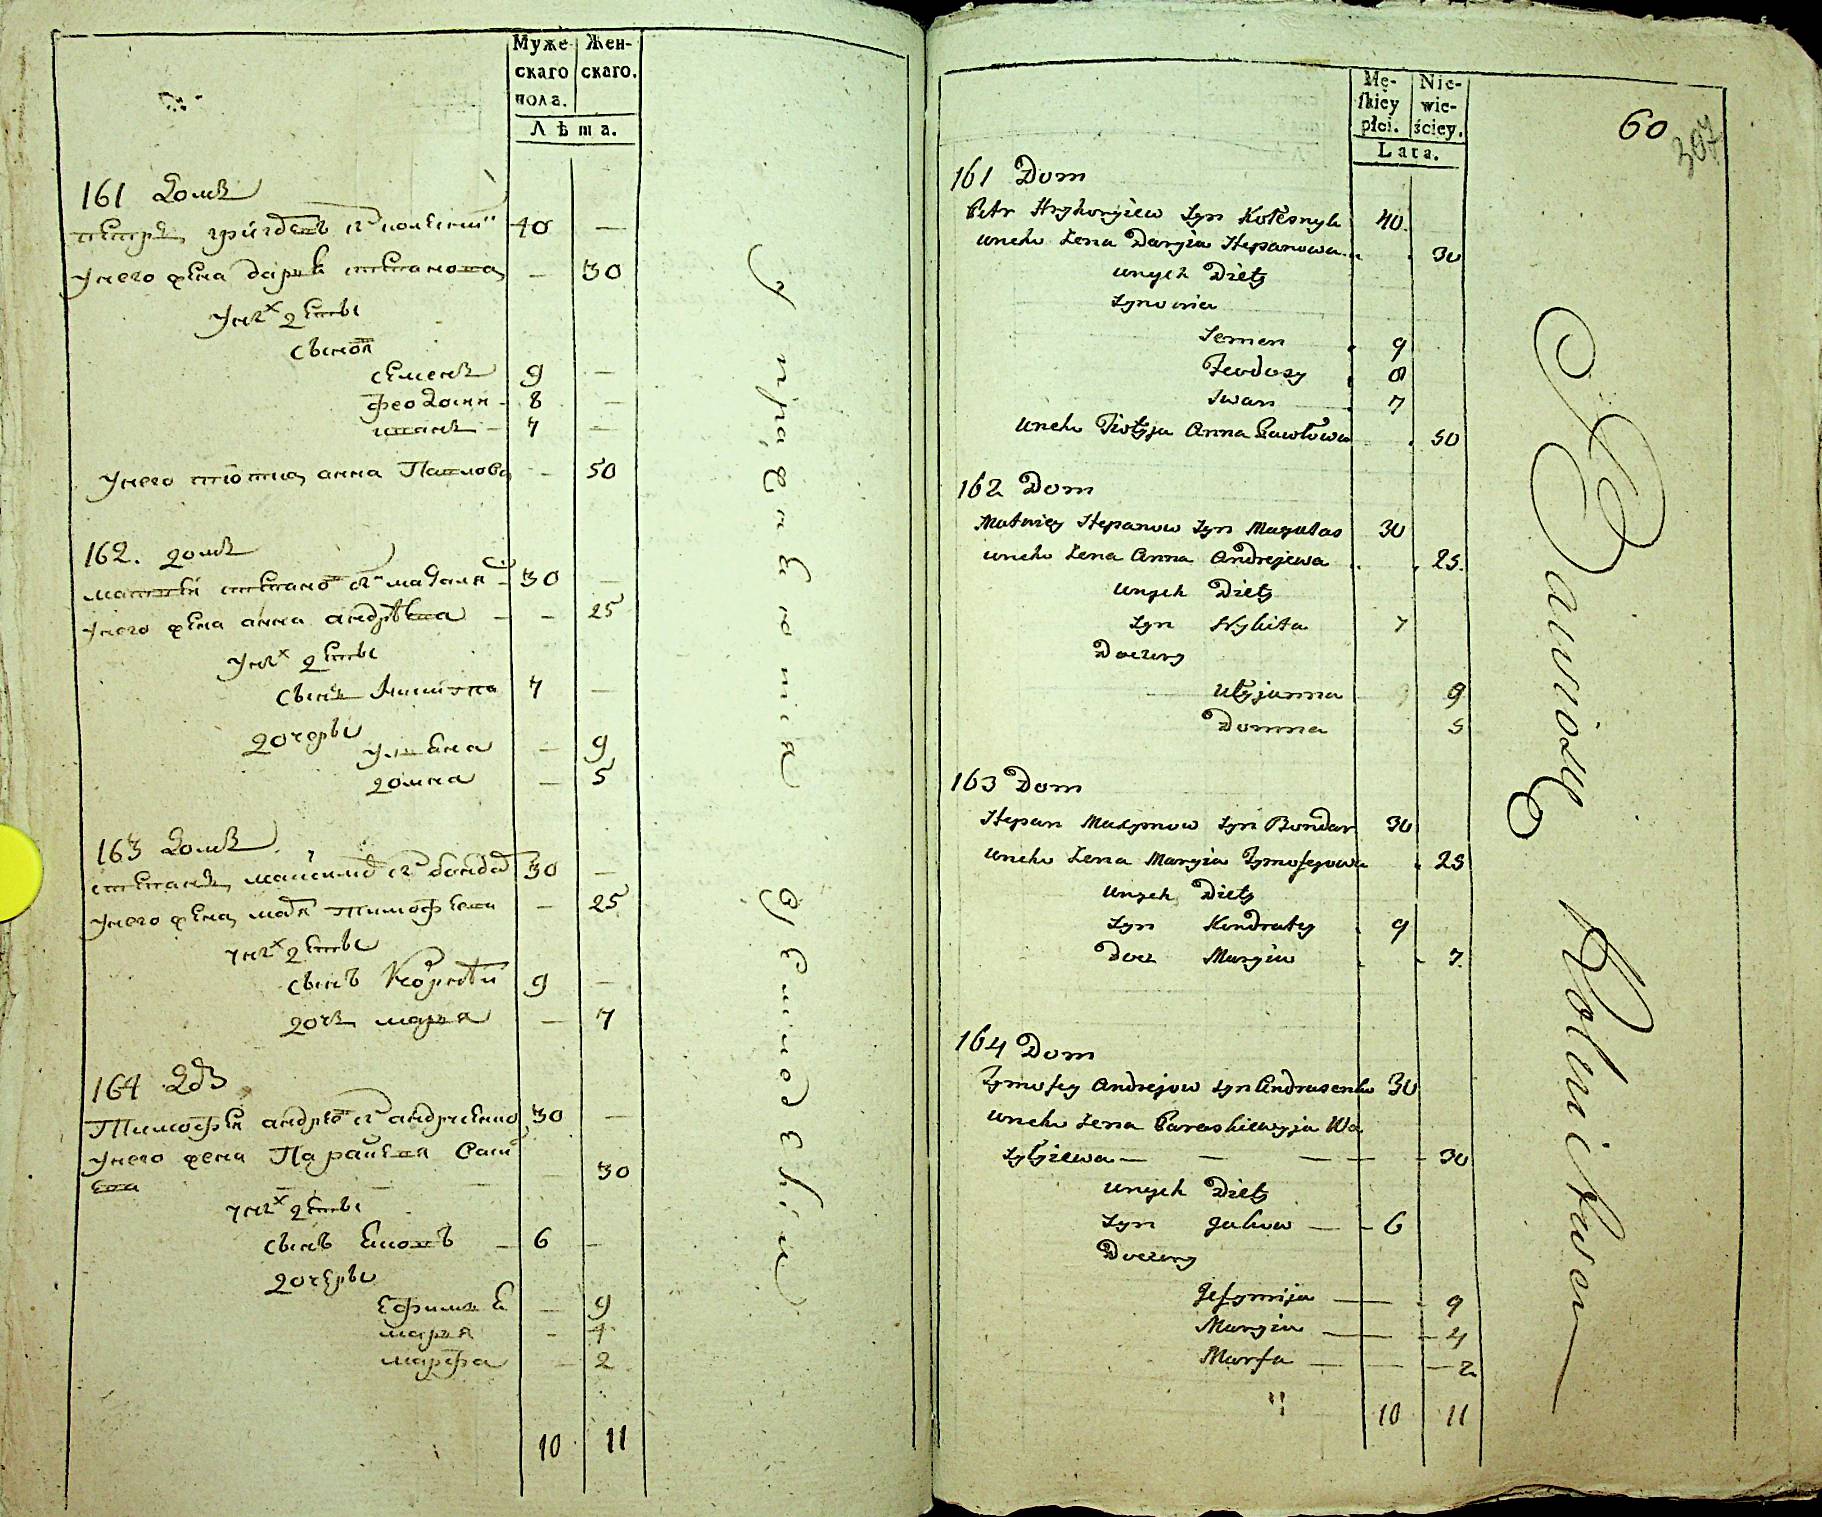 Муже-
скаго
пола.
Жен-
скаго.
Лѣта.
161 домъ
петръ григоревъ сн колесник 40 —
у него жена дария степанова — 30
у них дѣти
сыновя
семенъ 9 —
феодосии 8 —
иванъ 7 —
у него тіотка анна Павлова — 50
162. домъ
матвеи степанов сн 30 —
у него жена анна андрѣева — 25
у них дѣти
сынъ никита 7 —
дочеры
улияна — 9
домна — 5
163 домъ
степанъ максимов сн бондар 30 —
у него жена мария тимофеева — 25
у них дѣти
сынъ 9 —
дочь мария — 7
164 домъ
Тимофеи андреев сн андрусенко 30 —
у него жена Параскевия Васи
ева — 30
у них дѣти
сынъ яковъ 6 —
дочеры
ефимия — 9
мария — 4
марфа — 2
10 11
упражняются
земледелием
Mę-
ſkiey
płci.
Nie-
wie-
ściey.
Lata.
60
307
161 Dom
Petr Hryhoryiew Syn Kołesnyk 40.
uneho Żena Daryia Stepanowa 30
unych Dietÿ
Synowia
Semen 9
Feodosy 8
Iwan 7
uneho Tiotÿja Anna Pawłowa 50
162 Dom
Matwiey Stepanow Syn Magalas 30
uneho Żena Anna Andrejewa 25.
unych Dietÿ
Syn Nykita 7
Doczery
Ulÿjanna 9
Domna 5
163 Dom
Stepan Maxymow Syn Bondar 30
uneho Żena Maryia Tymofeyowa 25
unych Dietÿ
Syn Kondraty 9
Docz Maryia 7.
164 Dom
Tymofey Andrejow Syn Andrusenko 30
uneho Żena Paraskiewyja Wa
sylÿiewa — — — — 30
unych Dietÿ
Syn Jakow — 6
Doczery
Jefymija — 9
Maryia — 4
Marfa — — 2
10 11
Bawiący Rolnictwem